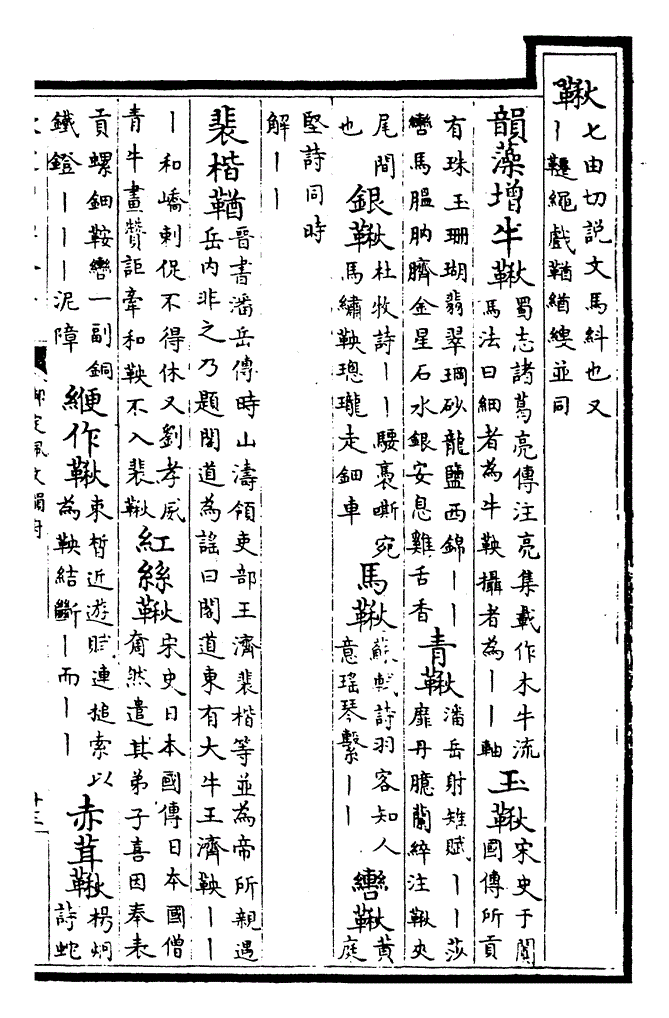 鞦
七由切說文馬紂也又
丨韆繩戲鞧緧緮並同
韻藻增牛鞦
蜀志諸葛亮傳注亮集載作木牛流
馬法曰細者為牛鞅攝者為丨丨軸
玉鞦
宋史于闐
國傳所貢
有珠玉珊瑚翡翠琱砂龍鹽西錦丨丨
轡馬膃肭臍金星石水銀安息雞舌香
青鞦
潘岳射雉賦丨丨莎
靡丹臆蘭綷注鞦夾
尾間
也
銀鞦
杜牧詩丨丨騕褭嘶宛
馬繡鞅璁瓏走鈿車
馬鞦
蘇軾詩羽客知人
意瑤琴繫丨丨
轡鞦
黃
庭
堅詩同時
解丨丨
裴楷鞧
晉書潘岳傳時山濤領吏部王濟裴楷等並為帝所親遇
岳內非之乃題閣道為謠曰閣道東有大牛王濟鞅丨丨
丨和嶠刺促不得休又劉孝威
青牛畫贊詎牽和鞅不入裴鞦
紅絲鞦
宋史日本國傳日本國僧
奝然遣其弟子喜因奉表
貢螺鈿鞍轡一副銅
鐵鐙丨丨丨泥障
緶作鞦
束晳近遊賦連槌索以
為鞅結斷丨而丨丨
赤茸鞦
楊炯
詩蛇